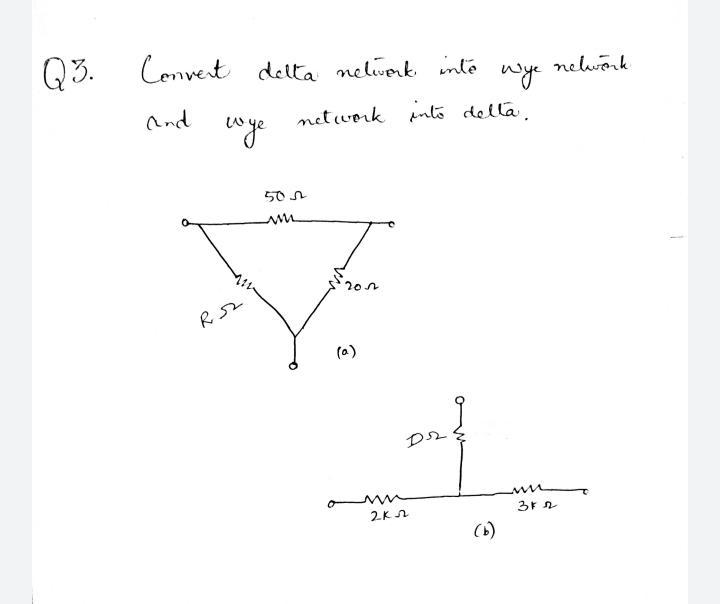 Q3. Convert delta network into wye network
and wye network into delta.
50 Ω
20 Ω
R Ω
(a)
D Ω
2K Ω
3K Ω
(b)